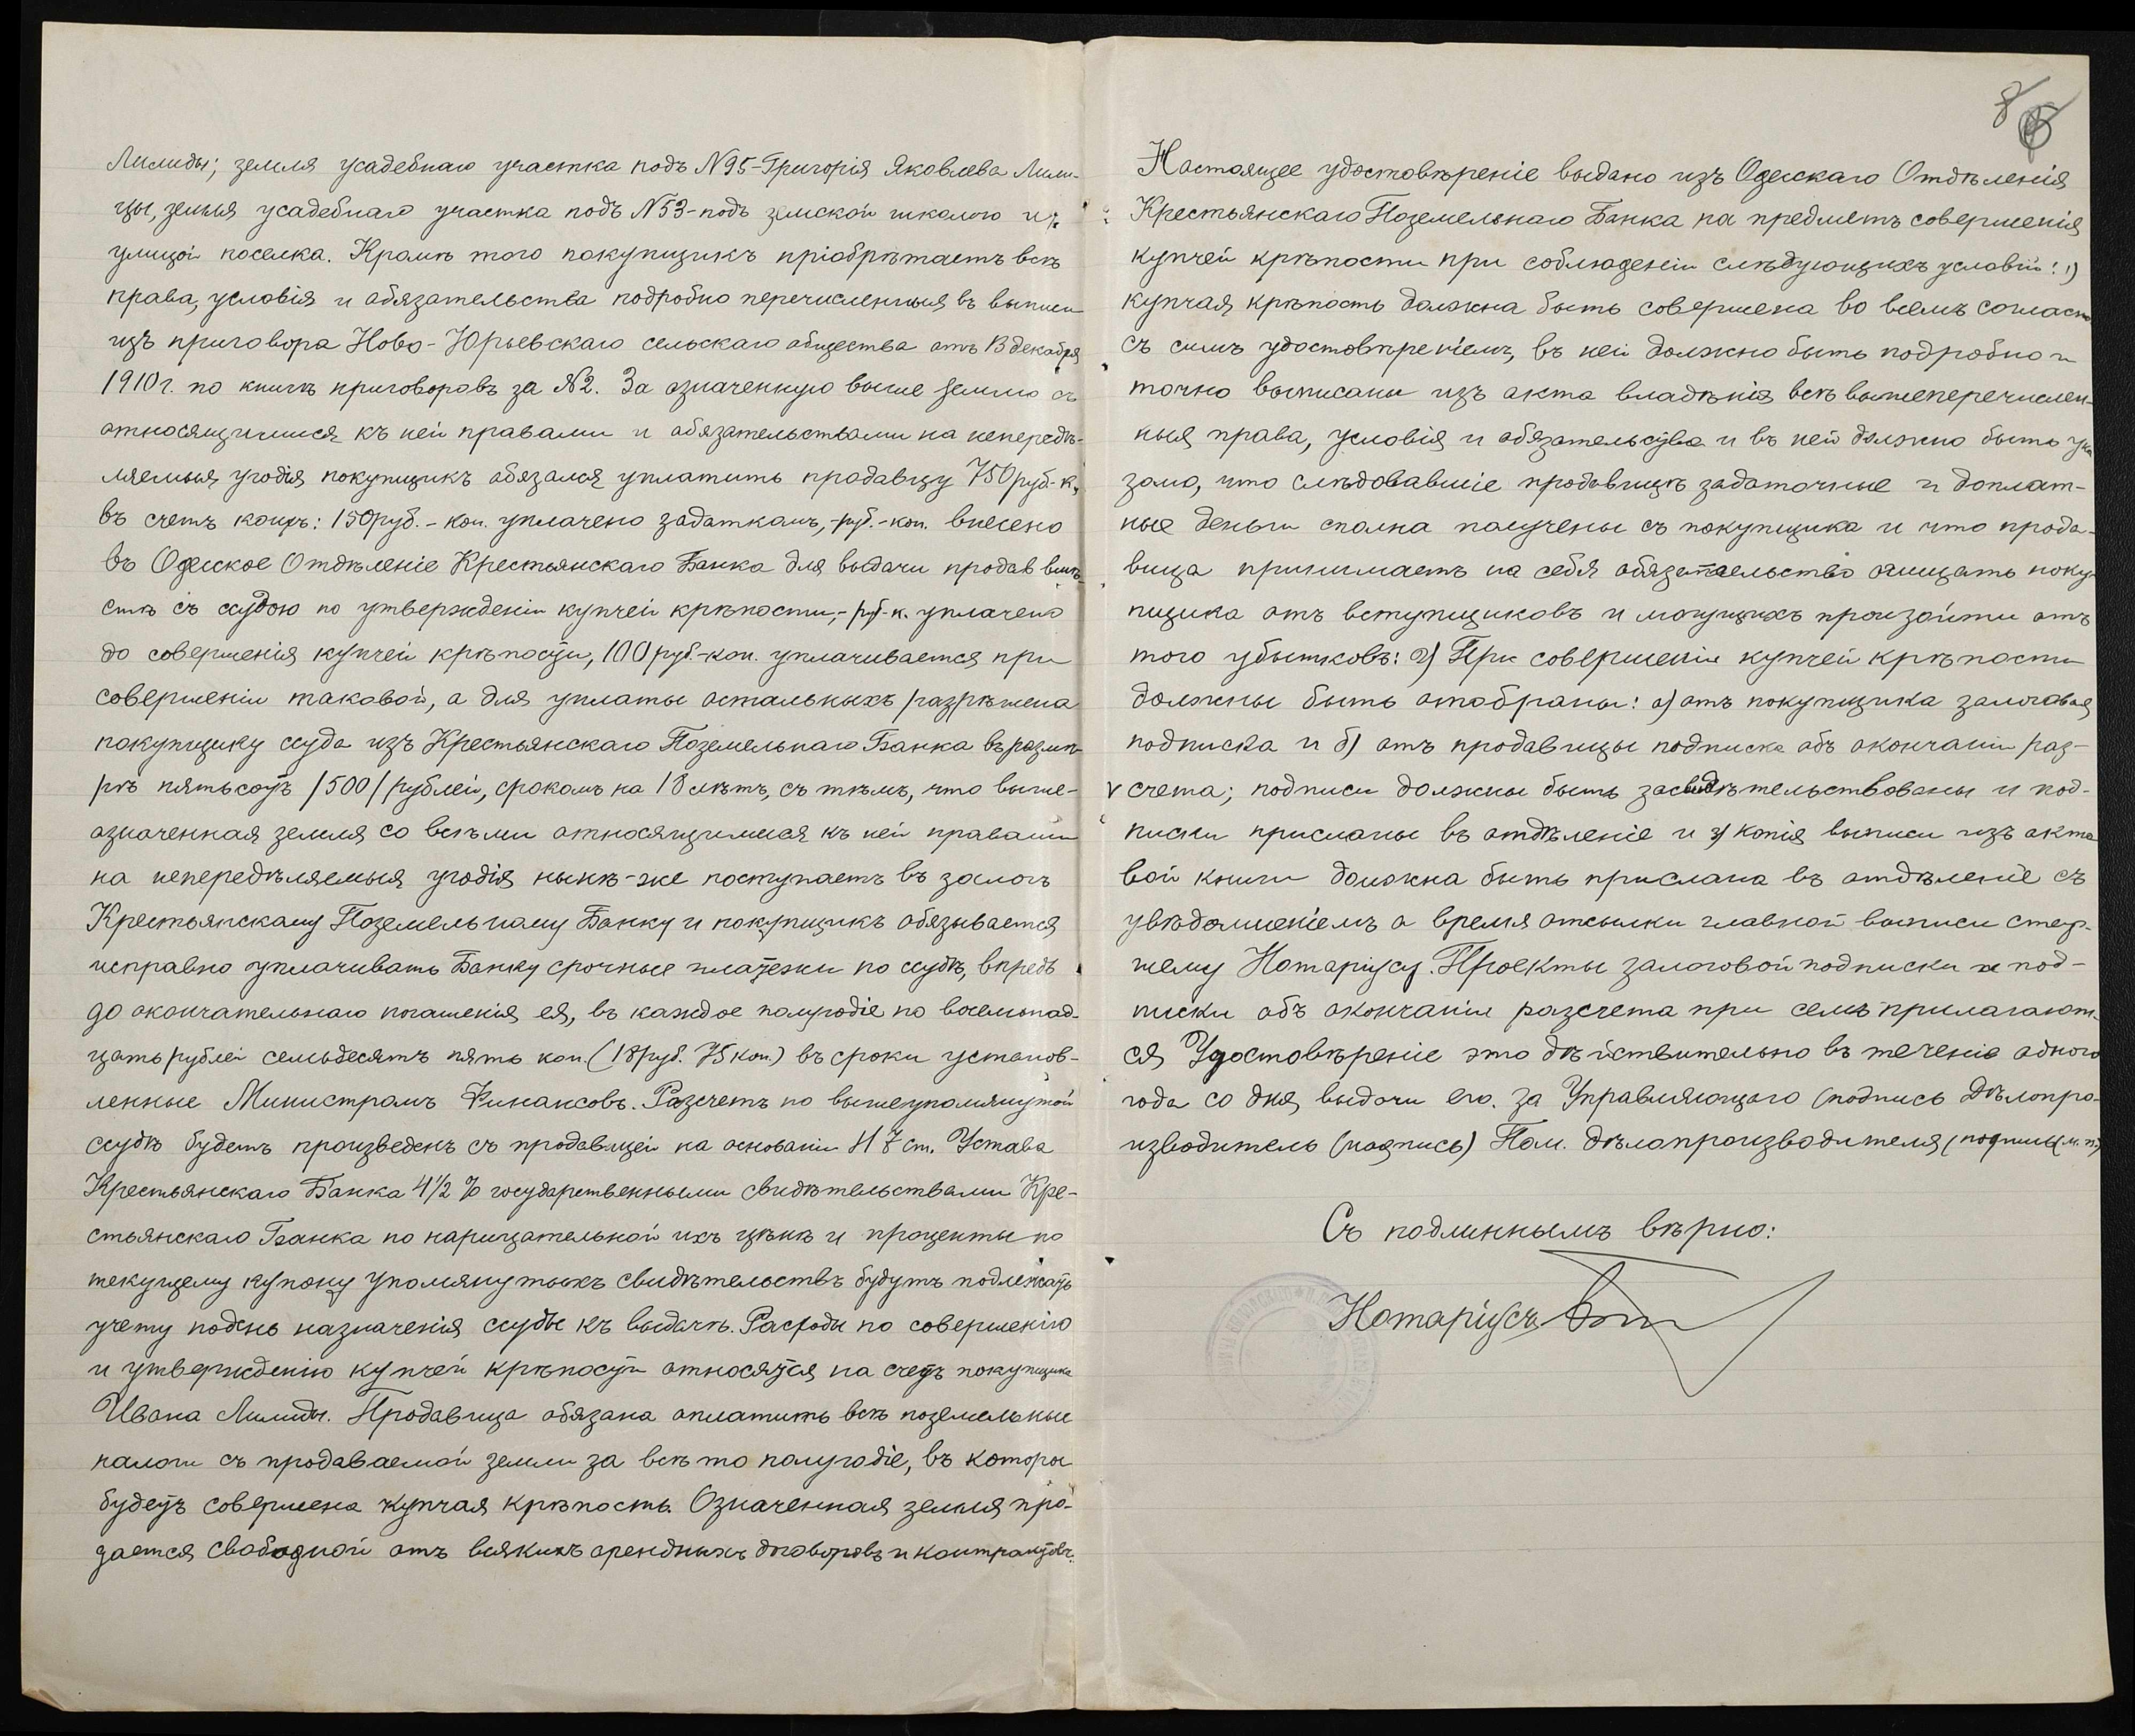 Лилиды; земля усадебнаго участка подъ N95-Григорія Яковлева Лили-
цы, земля усадебнаго участка подъ N53-подъ земской школою и
улицей поселка. Кромѣ того покупщикъ пріобрѣтаетъ всѣ
права, условія и обязательства подробно перечисленныя въ выписи
изъ приговора Ново-Юрьевскаго сельскаго общества отъ 13 декабря
1910 г. по книгѣ приговоровъ за №2. За означенную выше землю съ
относящимися къ ней правами и обязательствами на непередѣ-
ляемыя угодія покупщикъ обязался уплатить продавцу 750 руб.-к.,
въ счетъ коихъ: 150 руб.-коп. уплачено задаткомъ, -руб.-коп. внесено
въ Одесское Отдѣленіе Крестьянскаго Банка для выдачи продав вмѣ-
стѣ съ ссудою по утвержденіи купчей крѣпости, -руб-к. уплачено
до совершенія купчей крѣпости, 100 руб.-коп. уплачивается при
совершеніи таковой, а для уплаты остальныхъ разрѣшена
покупщику ссуда изъ Крестьянскаго Поземельнаго Банка въ размѣ-
рѣ пятьсотъ /500/ рублей, срокомъ на 18 лѣтъ, съ тѣмъ, что выше-
означенная земля со всѣми относящимися къ ней правами
на непередѣляемыя угодія нынѣ-же поступаетъ въ залогъ
Крестьянскому Поземельному Банку и покупщикъ обязывается
исправно уплачивать Банку срочные платежи по ссудѣ, впредь
до окончательнаго погашенія ея, въ каждое полугодіе по восемнад-
цать рублей семьдесятъ пять коп. (18 руб. 75 коп.) въ сроки установ-
ленные Министромъ Финансовъ. Разсчетъ по вышеупомянутой
ссудѣ будетъ произведенъ съ продавцей на основаніи 47 ст. Устава
Крестьянскаго Банка 4½ % государственными свидѣтельствами Кре-
стьянскаго Банка по нарицательной ихъ цѣнѣ и проценты по
текущему купону упомянутыхъ свидѣтельствъ будутъ подлежать
учету по день назначенія ссуды къ выдачѣ. Расходы по совершенію
и утвержденію купчей крѣпости относятся на счетъ покупщика
Ивана Лилиды. Продавица обязана оплатить всѣ поземельные
налоги съ продаваемой земли за всѣ то полугодіе, въ которы
будетъ совершена купчая крѣпость. Означенная земля про-
дается свободной отъ всякихъ арендныхъ договоровъ и контрактовъ.
Настоящее удостовѣреніе выдано изъ Одесскаго Отдѣленія
Крестьянскаго Поземельнаго Банка на предметъ совершенія
купчей крѣпости при соблюденіи слѣдующихъ условій: 1)
купчая крѣпость должна быть совершена во всемъ согласно
съ симъ удостовѣреніемъ, въ ней должно быть подробно и
точно выписаны изъ акта владѣнія всѣ вышеперечислен-
ныя права, условія и обязательства и въ ней должно быть ука
зано, что слѣдовавшіе продавицѣ задаточные и доплат-
ные деньги сполна получены съ покупщика и что прода-
вица принимаетъ на себя обязательство очищать поку-
пщика отъ вступщиковъ и могущихъ произойти отъ
того убытковъ: 2) При совершеніи купчей крѣпости
должны быть отобраны: а) отъ покупщика залоговая
подписка и б) отъ продавицы подписка объ окончаніи раз-
счета; подписи должны быть засвидѣтельствованы и под-
писки присланы въ отдѣленіе и 3) копія выписи изъ акто
вой книги должна быть прислана въ отдѣленіе съ
увѣдомленіемъ о время отсылки главной выписи стар-
шему Нотаріусу. Проекты залоговой подписки и под-
писки объ окончаніи разсчета при семъ прилагают-
ся Удостовѣреніе это дѣйствительно въ теченіе одного
года со дня выдачи его. За Управляющаго (подпись Дѣлопро-
изводитель (подпись) Пом. дѣлопроизводителя (подпись (м.п.)
Съ подлиннымъ вѣрно:
Нотаріусъ